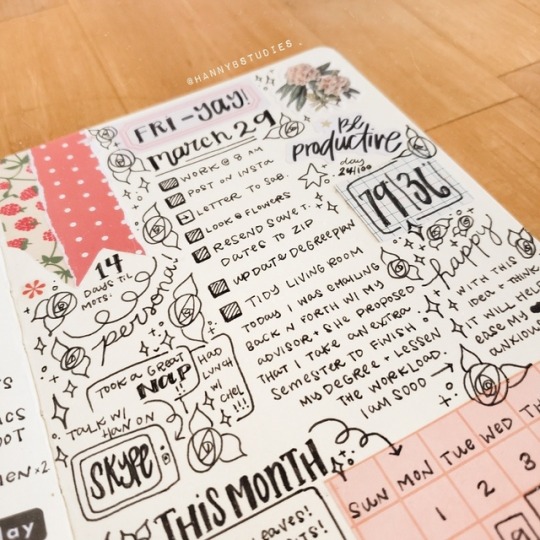 @HANNYBSTUDIES.
FRI-YAY!
March 29
WORK @ 8 AM
POST ON INSTA
LETTER TO SAB.
LOOK @ FLOWERS
RESEND SAVE T.
DATES TO ZIP
UPDATE DEGREE PLAN
TIDY LIVING ROOM
Be
productive
day
24/100
79|36
14
DAYS TIL
MOTS.
personal
TOOK A GREAT
NAP
HAD
LUNCH
W/
CHEL
!!!
TALK W/
HAN ON
SKYPE
TODAY I WAS EMAILING
BACK N FORTH W/ MY
ADVISOR + SHE PROPOSED
THAT I TAKE AN EXTRA
SEMESTER TO FINISH
MY DEGREE + LESSEN
THE WORKLOAD.
I AM SOOO
happy
WITH THIS
IDEA + THINK
IT WILL HELP
EASE MY
ANXIOUS
THIS MONTH
SUN MON TUE WED TH
1 2 3